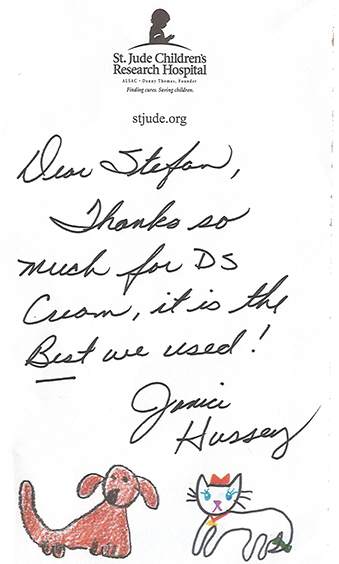 St. Jude Children's
Research Hospital
ALSAC • Danny Thomas, Founder
Finding cures. Saving children.
stjude.org
Dear Stefan,
Thanks so
much for DS
Cream, it is the
Best we used!
Janice
Hussey